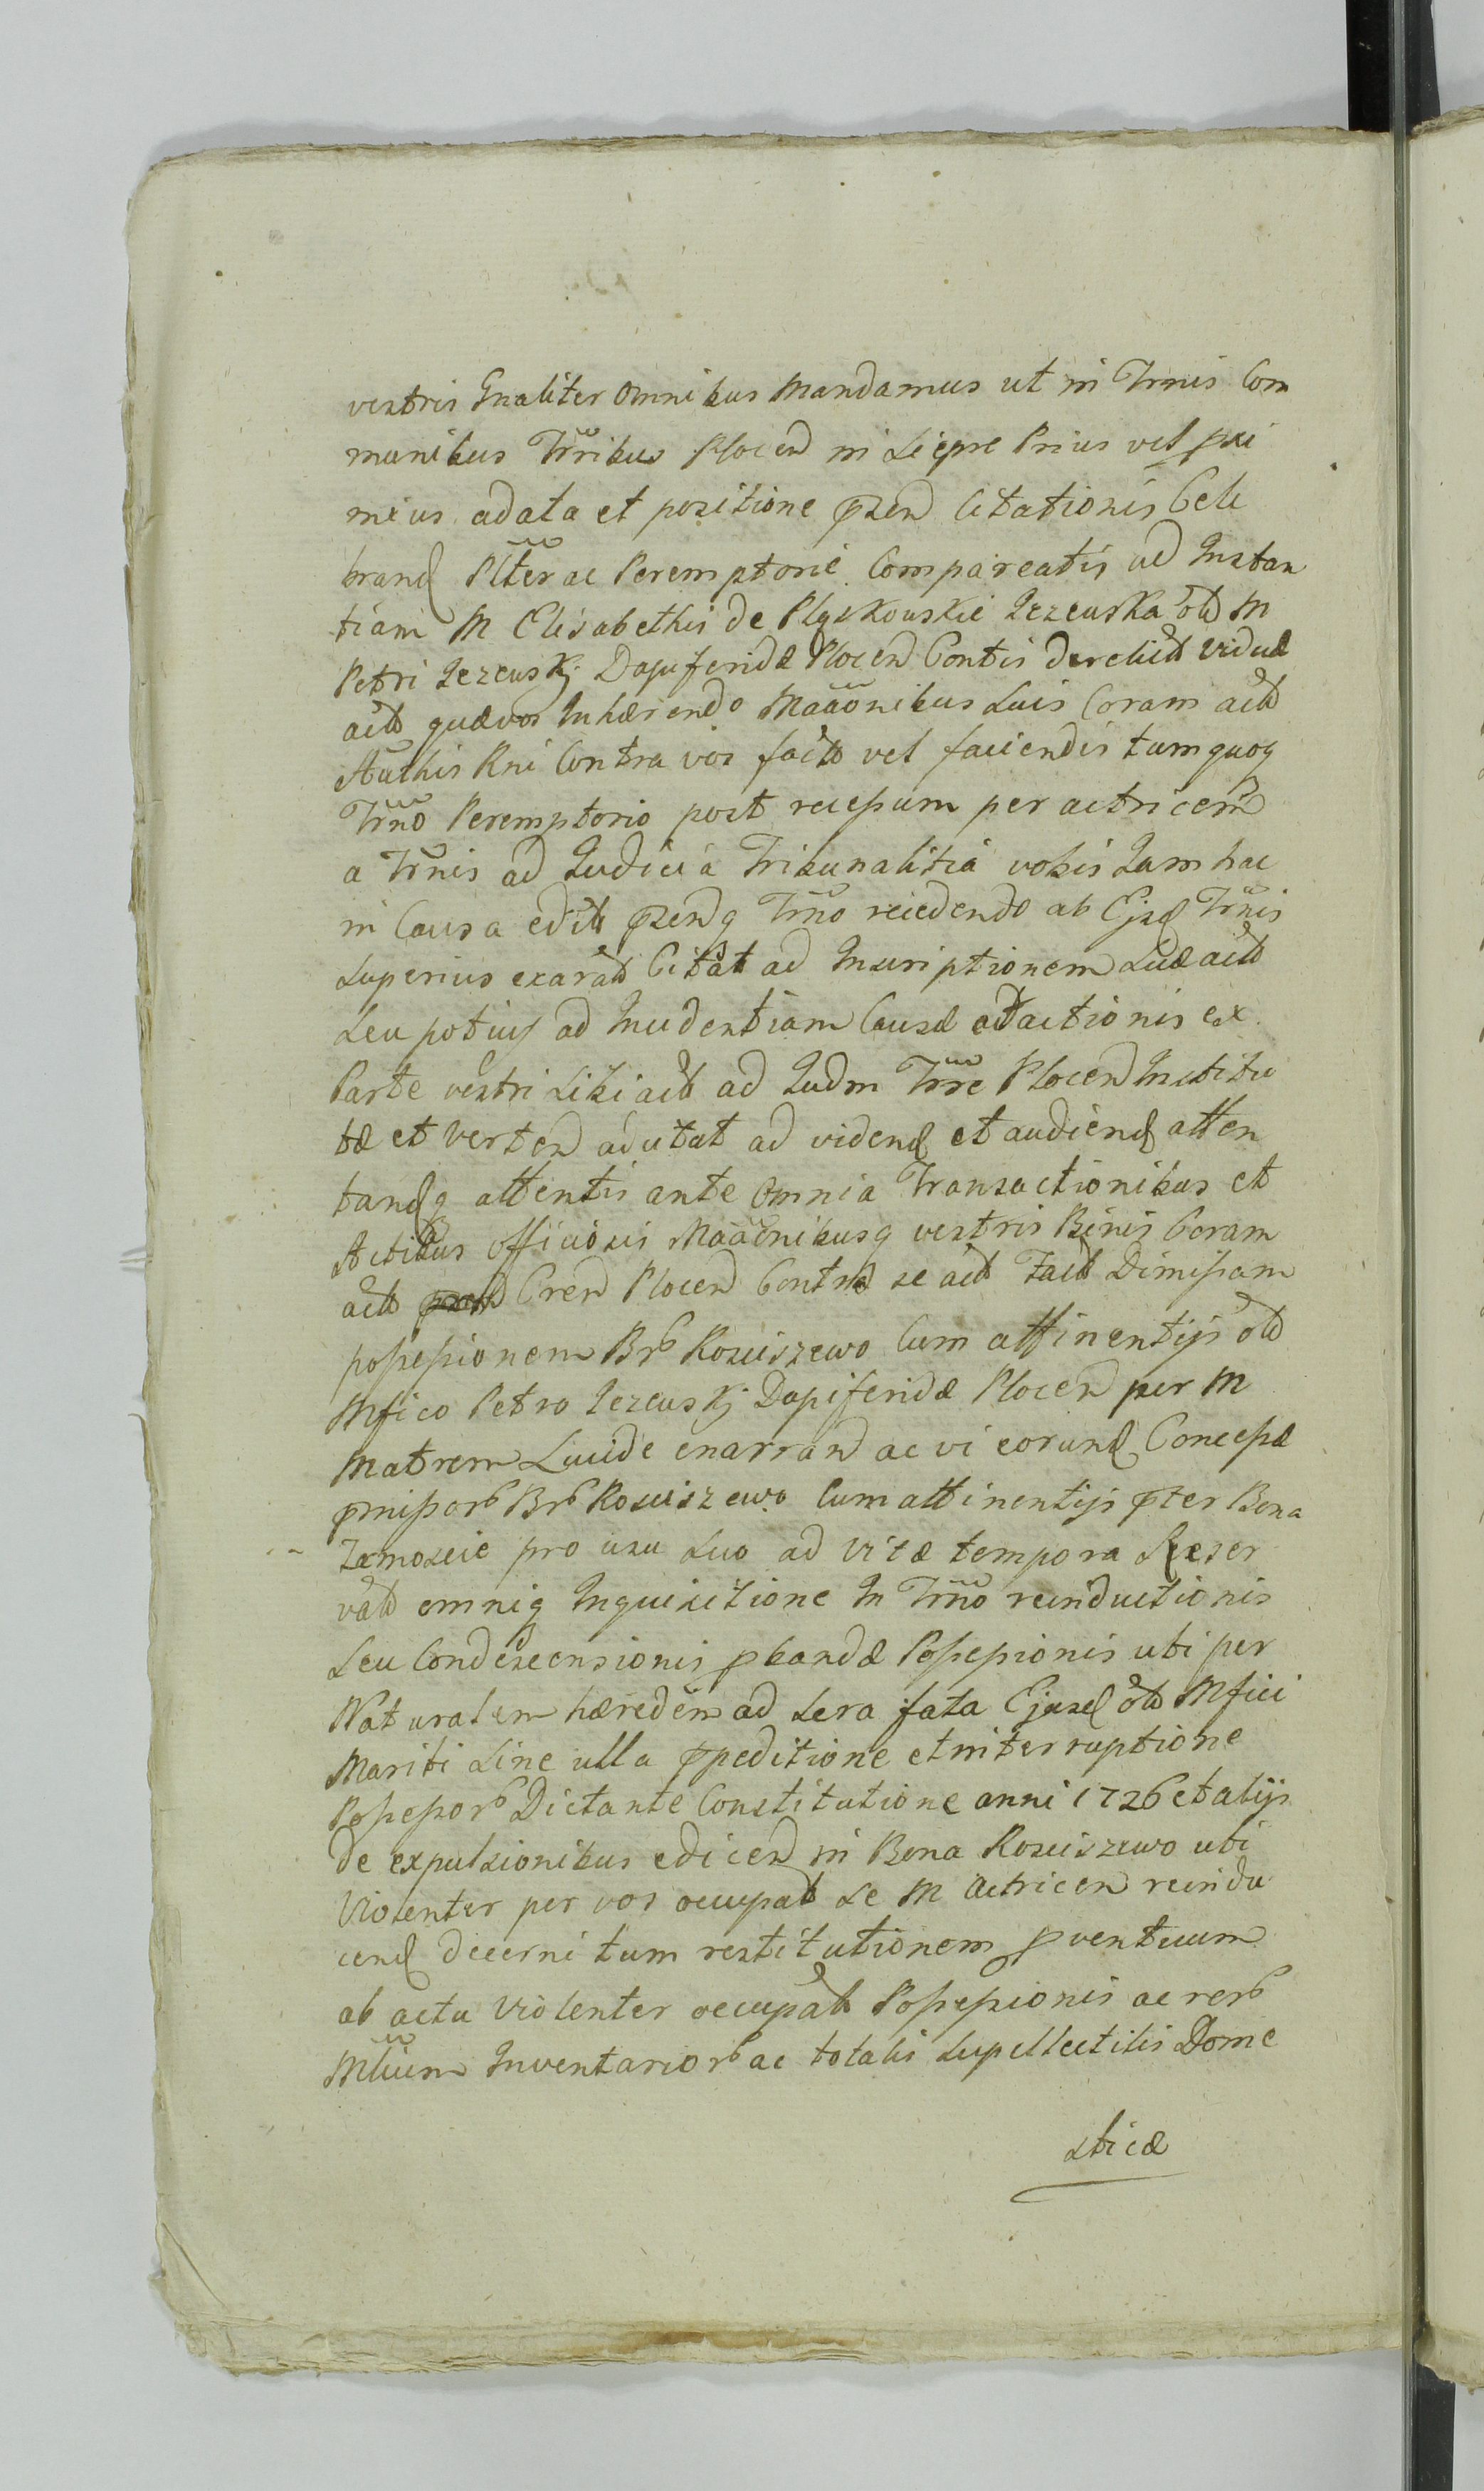 vestris Gnaliter Omnibus Mandamus ut in Trnis Com
munibus Trribus Plocen in Siepre Prius vel pxi
mius a data et positione pzen Citationis Cele
brand Pltter ac Peremptorie Compareatis ad Instan
tiam M Elisabethis de Plqskowskie Jezewska olt M
Petri Jezewskj Dapiferidæ Plocen Contis derelict viduæ
actt quævos Inhærendo Maaonibus suis Coram actt
Authis Rni Contra vos factt vel faciendis tumquoq
Trno Peremptorio post recessum per actricem
a Trnis ad Judicia Tribunalitia vobis Jam hac
in Causa editt pzenq Trno reiedendo ab Ejusd Trnis
superius exaratt Citat ad Inscriptionem suæ actt
seu potius ad Incidentiam Causæ et actionis ex
Parte vestri sibi actt ad Judm Trre Plocen Institu
tæ et verten adcitat ad vidend et audiend atten
tandq attentis ante omnia Transactionibus et
Actibus officiosis Maaonibusq vestris Binis Coram
actt Cren Plocen Contra se actt Factt Dimissam
possessionem Brb Kosciszewo Cum attinentijs olt
Mfico Petro Jezewskj Dapiferidæ Plocen per M
Matrem Lucide enarran ac vi eorund Concessæ
pmissorb Brb Kosciszewo Cum attinentijs pter Bona
Zamoscie pro usu suo ad vitæ tempora Reser
vatt omniq Inquisitione In Trno reinductionis
seu Condescensionis pbandæ Possessionis ubi per
Naturalem hæredem ad sera fata Ejusd olt Mfici
Mariti sine ulla ppeditione et interruptione
Possessorb Dictante Constitutione anni 1726 et alijs
de expulsionibus edicen in Bona Kosciszewo ubi
Violenter per vos occupatt se M Actricem reindu
cend decerni tum restitutionem pventuum
ab actu violenter occupatt Possessionis ac rerb
Mlium Inventariorb ac totalis supellectilis Dome
sticæ